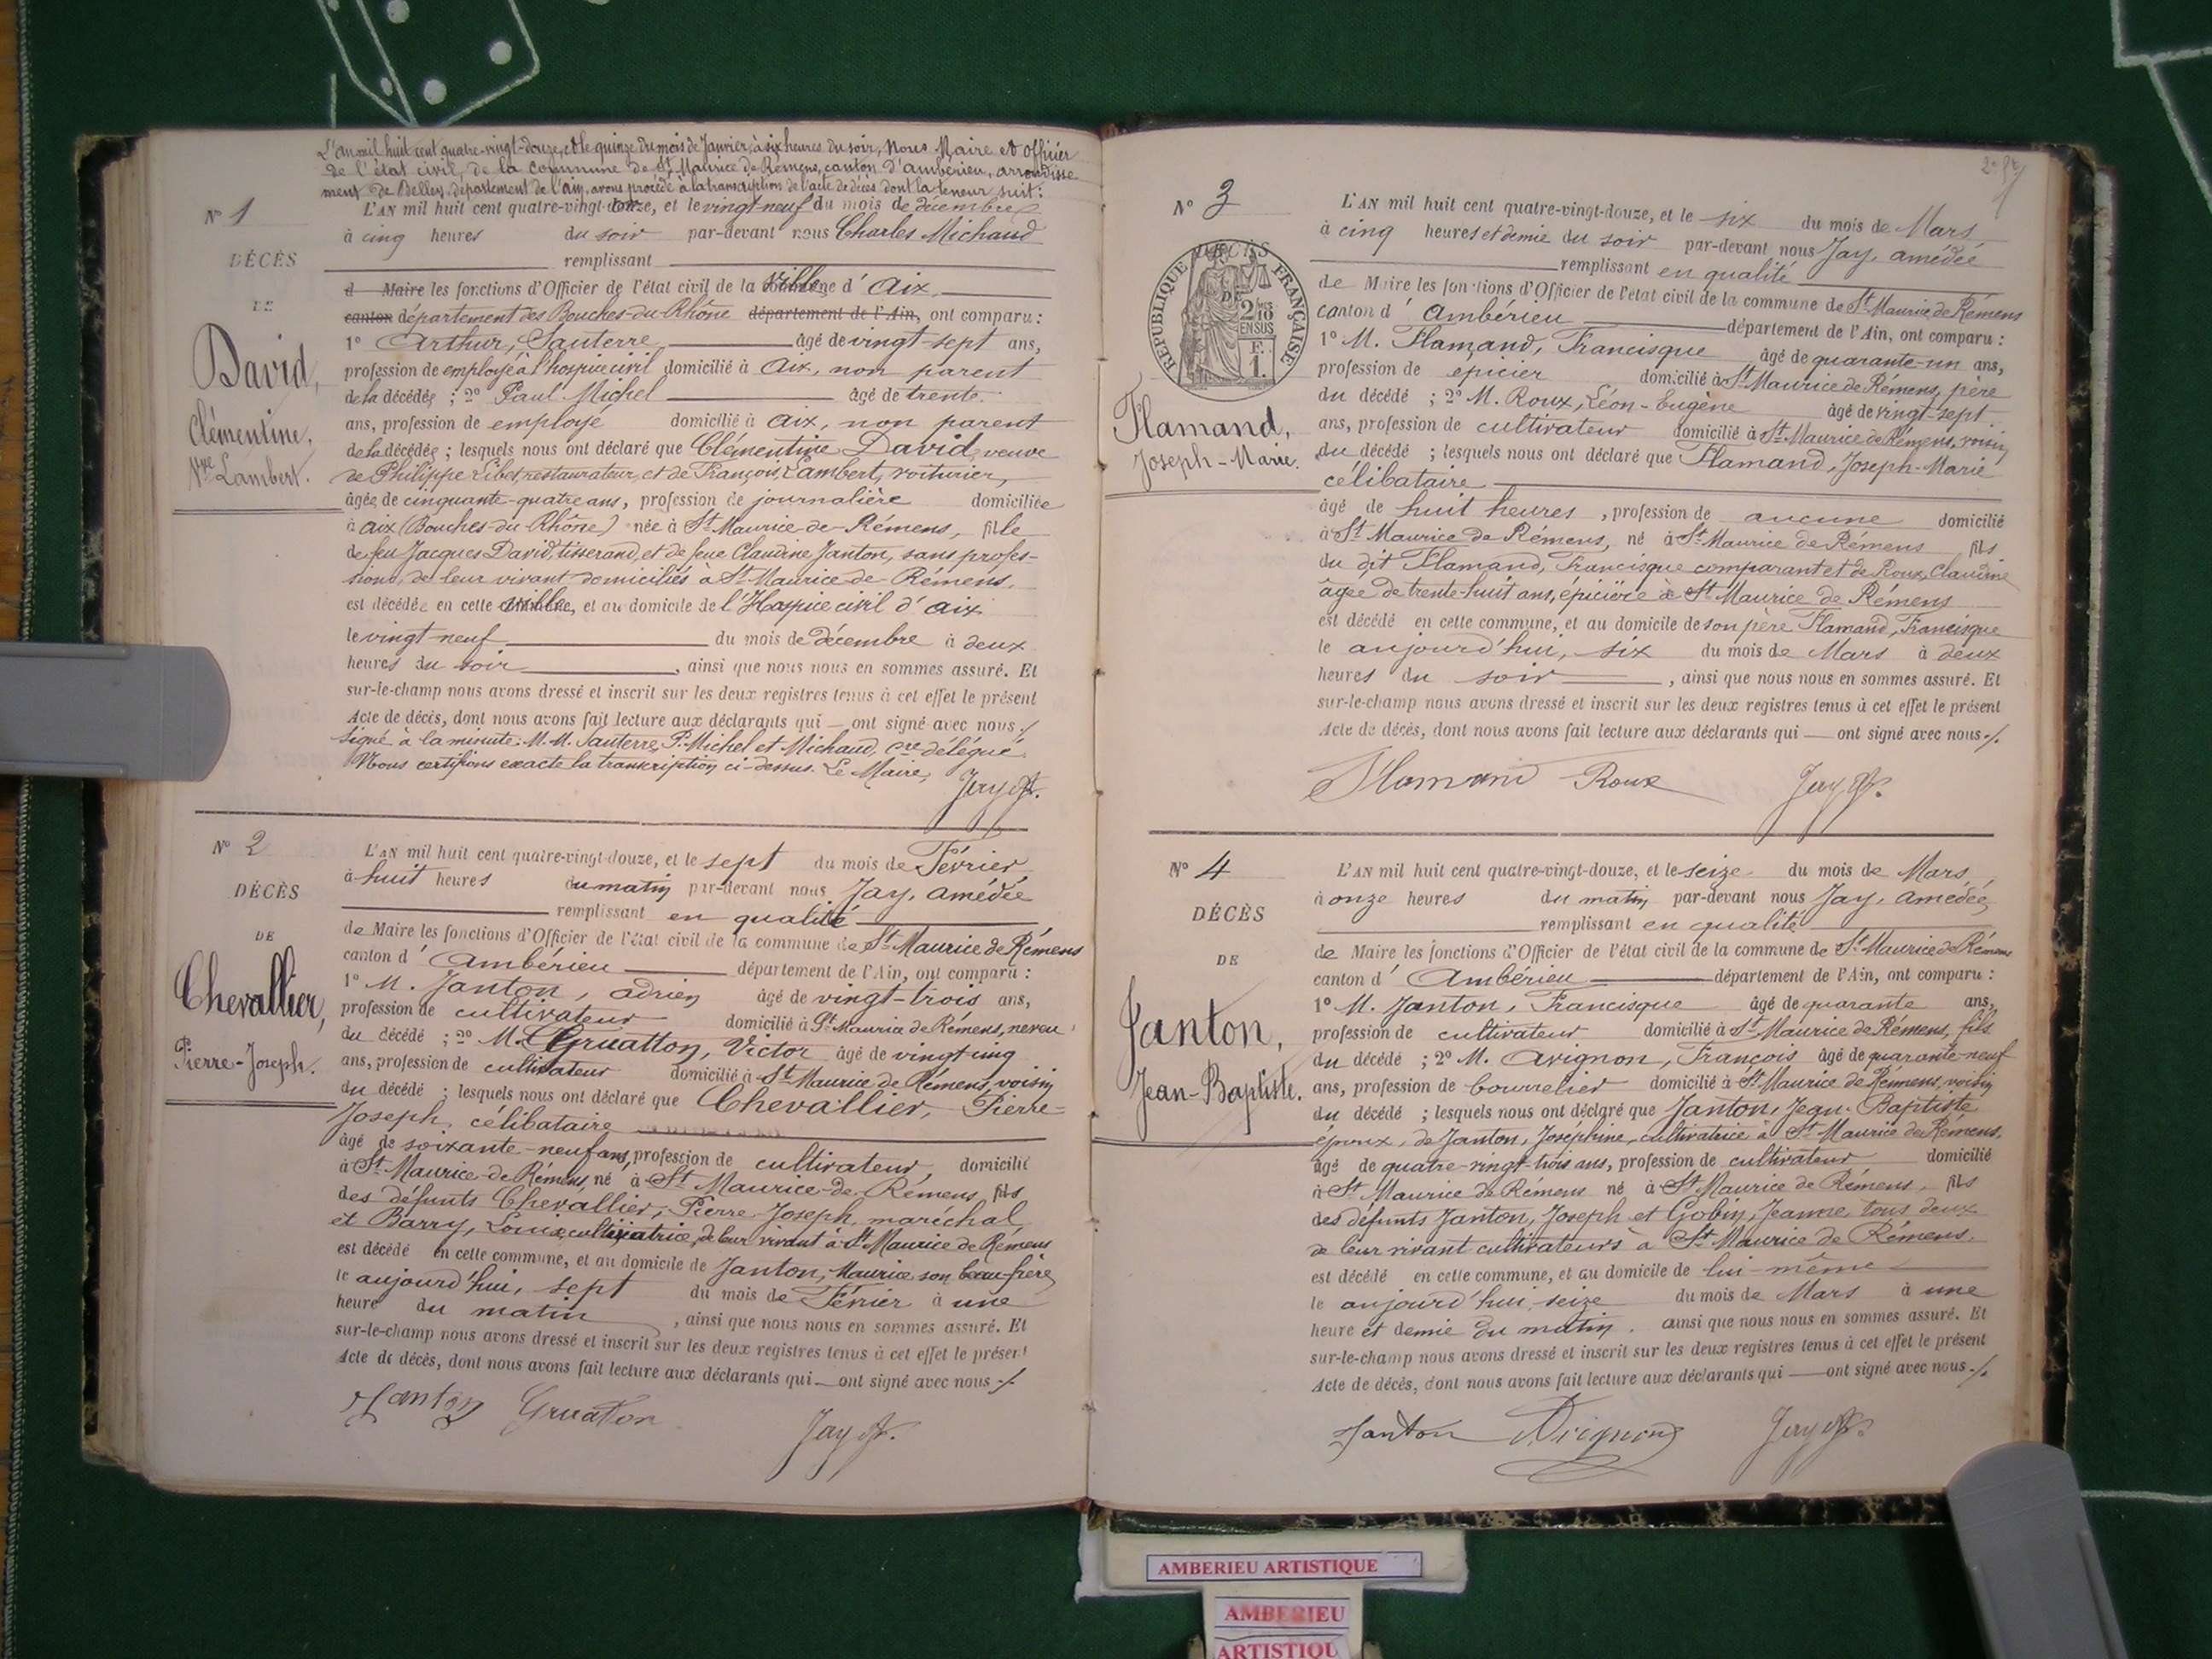 L'an mil huit cent quatre-vingt-douze, et le quinze du mois de Janvier, à six heures du soir, Nous Maire et Officier
de l'état civil, de la Commune de St Maurice de Rémens, canton d'Ambérieu, arrondisse
ment de Belley, département de l'Ain, avons procédé à la transcription de l'acte de décès dont la teneur suit :
N° 1
L'AN mil huit cent quatre-vingt-onze, et le vingt-neuf du mois de décembre
à cinq heures du soir par-devant nous Charles Michaud
DÉCÈS
remplissant
d Maire les fonctions d'Officier de l'état civil de la ville d' Aix
DE
canton département des Bouches-du-Rhône département de l'Ain, ont comparu :
1° Arthur, Sauterre âgé de vingt-sept ans,
David,
profession de employé à l'hospice civil domicilié à Aix, non parent
de la décédée ; 2° Paul Michel âgé de trente
Clémentine,
ans, profession de employé domicilié à Aix, non parent
de la décédée ; lesquels nous ont déclaré que Clémentine David, veuve
Vve Lambert.
de Philippe Libes, restaurateur, et de François Lambert, voiturier,
âgée de cinquante-quatre ans, profession de journalière domiciliée
à Aix (Bouches-du-Rhône) née à St Maurice-de-Rémens, fille
de feu Jacques David, tisserand, et de feue Claudine Janton, sans profes-
sions, de leur vivant domiciliés à St Maurice-de-Rémens.
est décédée en cette ville, et au domicile de l'Hospice civil d'Aix
le vingt-neuf du mois de décembre à deux
heures du soir , ainsi que nous nous en sommes assuré. Et
sur-le-champ nous avons dressé et inscrit sur les deux registres tenus à cet effet le présent
Acte de décès, dont nous avons fait lecture aux déclarants qui — ont signé avec nous ./.
Signé à la minute : M.M. Sauterre, P. Michel et Michaud, cre délégué
Nous certifions exacte la transcription ci-dessus. Le Maire,
Jay A.
N° 2
L'AN mil huit cent quatre-vingt-douze, et le sept du mois de Février
à huit heures du matin par-devant nous Jay, Amédée
DÉCÈS
remplissant en qualité
de Maire les fonctions d'Officier de l'état civil de la commune de St Maurice de Rémens
DE
canton d' Ambérieu département de l'Ain, ont comparu :
1° M. Janton, Adrien âgé de vingt-trois ans,
Chevallier,
profession de cultivateur domicilié à St Maurice de Rémens, neveu
du décédé ; 2° M. Gruatton, Victor âgé de vingt-cinq
Pierre-Joseph.
ans, profession de cultivateur domicilié à St Maurice de Rémens, voisin
du décédé ; lesquels nous ont déclaré que Chevallier, Pierre-
Joseph, célibataire
âgé de soixante-neuf ans, profession de cultivateur domicilié
à St Maurice-de-Rémens, né à St Maurice-de-Rémens, fils
des défunts Chevallier, Pierre Joseph, maréchal,
et Barry, Louise, cultivatrice, de leur vivant à St Maurice de Rémens
est décédé en cette commune, et au domicile de Janton, Maurice, son beau-frère
le aujourd'hui, sept du mois de Février à une
heure du matin , ainsi que nous nous en sommes assuré. Et
sur-le-champ nous avons dressé et inscrit sur les deux registres tenus à cet effet le présent
Acte de décès, dont nous avons fait lecture aux déclarants qui — ont signé avec nous ./.
Janton Gruaton Jay A.
N° 3
L'AN mil huit cent quatre-vingt-douze, et le six du mois de Mars
à cinq heures et demie du soir par-devant nous Jay, Amédée
DÉCÈS
remplissant en qualité
RÉPUBLIQUE FRANÇAISE
DE
2/10 EN SUS
F. 1.
de Maire les fonctions d'Officier de l'état civil de la commune de St Maurice de Rémens
canton d' Ambérieu département de l'Ain, ont comparu :
1° M. Flamand, Francisque âgé de quarante-un ans,
profession de épicier domicilié à St Maurice de Rémens, père
du décédé ; 2° M. Roux, Léon-Eugène âgé de vingt-sept
Flamand,
ans, profession de cultivateur domicilié à St Maurice de Rémens, voisin
Joseph-Marie.
du décédé ; lesquels nous ont déclaré que Flamand, Joseph-Marie
célibataire
âgé de huit heures , profession de aucune domicilié
à St Maurice de Rémens, né à St Maurice de Rémens fils
du dit Flamand, Francisque comparant et de Roux, Claudine
âgée de trente-huit ans, épicière à St Maurice de Rémens
est décédé en cette commune, et au domicile de son père Flamand, Francisque
le aujourd'hui, six du mois de Mars à deux
heures du soir , ainsi que nous nous en sommes assuré. Et
sur-le-champ nous avons dressé et inscrit sur les deux registres tenus à cet effet le présent
Acte de décès, dont nous avons fait lecture aux déclarants qui — ont signé avec nous ./.
Flamand Roux Jay A.
N° 4
L'AN mil huit cent quatre-vingt-douze, et le seize du mois de Mars,
à onze heures du matin par-devant nous Jay, Amédée,
DÉCÈS
remplissant en qualité
de Maire les fonctions d'Officier de l'état civil de la commune de St Maurice de Rémens
DE
canton d' Ambérieu département de l'Ain, ont comparu :
1° M. Janton, Francisque âgé de quarante ans,
Janton,
profession de cultivateur domicilié à St Maurice de Rémens, fils
du décédé ; 2° M. Avignon, François âgé de quarante-neuf
Jean-Baptiste.
ans, profession de bourrelier domicilié à St Maurice de Rémens, voisin
du décédé ; lesquels nous ont déclaré que Janton, Jean-Baptiste
époux, de Janton, Joséphine, cultivatrice à St Maurice de Rémens,
âgé de quatre-vingt-trois ans, profession de cultivateur domicilié
à St Maurice de Rémens né à St Maurice de Rémens, fils
des défunts Janton, Joseph et Gobin, Jeanne, tous deux
de leur vivant cultivateurs à St Maurice de Rémens.
est décédé en cette commune, et au domicile de lui-même
le aujourd'hui, seize du mois de Mars à une
heure et demie du matin . ainsi que nous nous en sommes assuré. Et
sur-le-champ nous avons dressé et inscrit sur les deux registres tenus à cet effet le présent
Acte de décès, dont nous avons fait lecture aux déclarants qui — ont signé avec nous ./.
Janton Avignon Jay A.
AMBERIEU ARTISTIQUE
AMBERIEU
ARTISTIQU